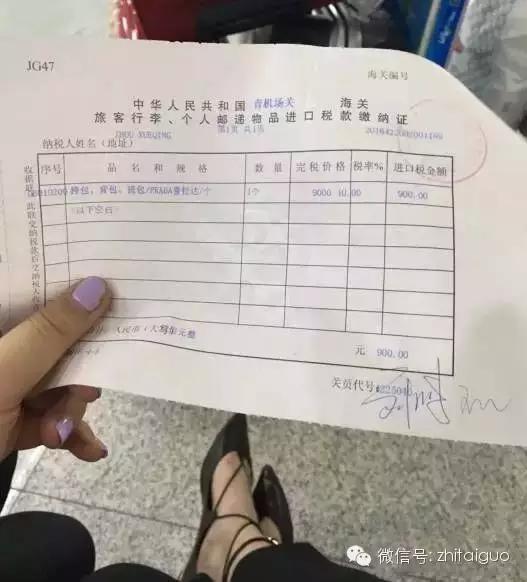 JG47
海关编号
中华人民共和国 青机场关 海关
旅客行李、个人邮递物品进口税款缴纳证
纳税人姓名(地址) ZHOU XUEQING 第1页 共1页
序号 品名和规格 数量 完税价格 税率% 进口税金额
06010200 挎包、背包、提包/PRADA普拉达/个 1个 9000 10.00 900.00
以下空白
人民币(大写) 元整
元 900.00
关员代号
微信号: zhitaiguo